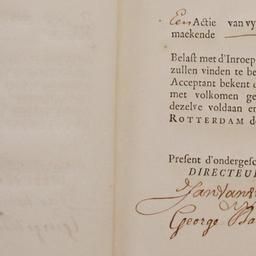 Een Actie van vy
maekende
Belast met d'Inroep
zullen vinden te be
Acceptant bekent d
met volkomen ge
dezelve voldaan en
ROTTERDAM de
Present d'ondergesc
DIRECTEU
George Ba